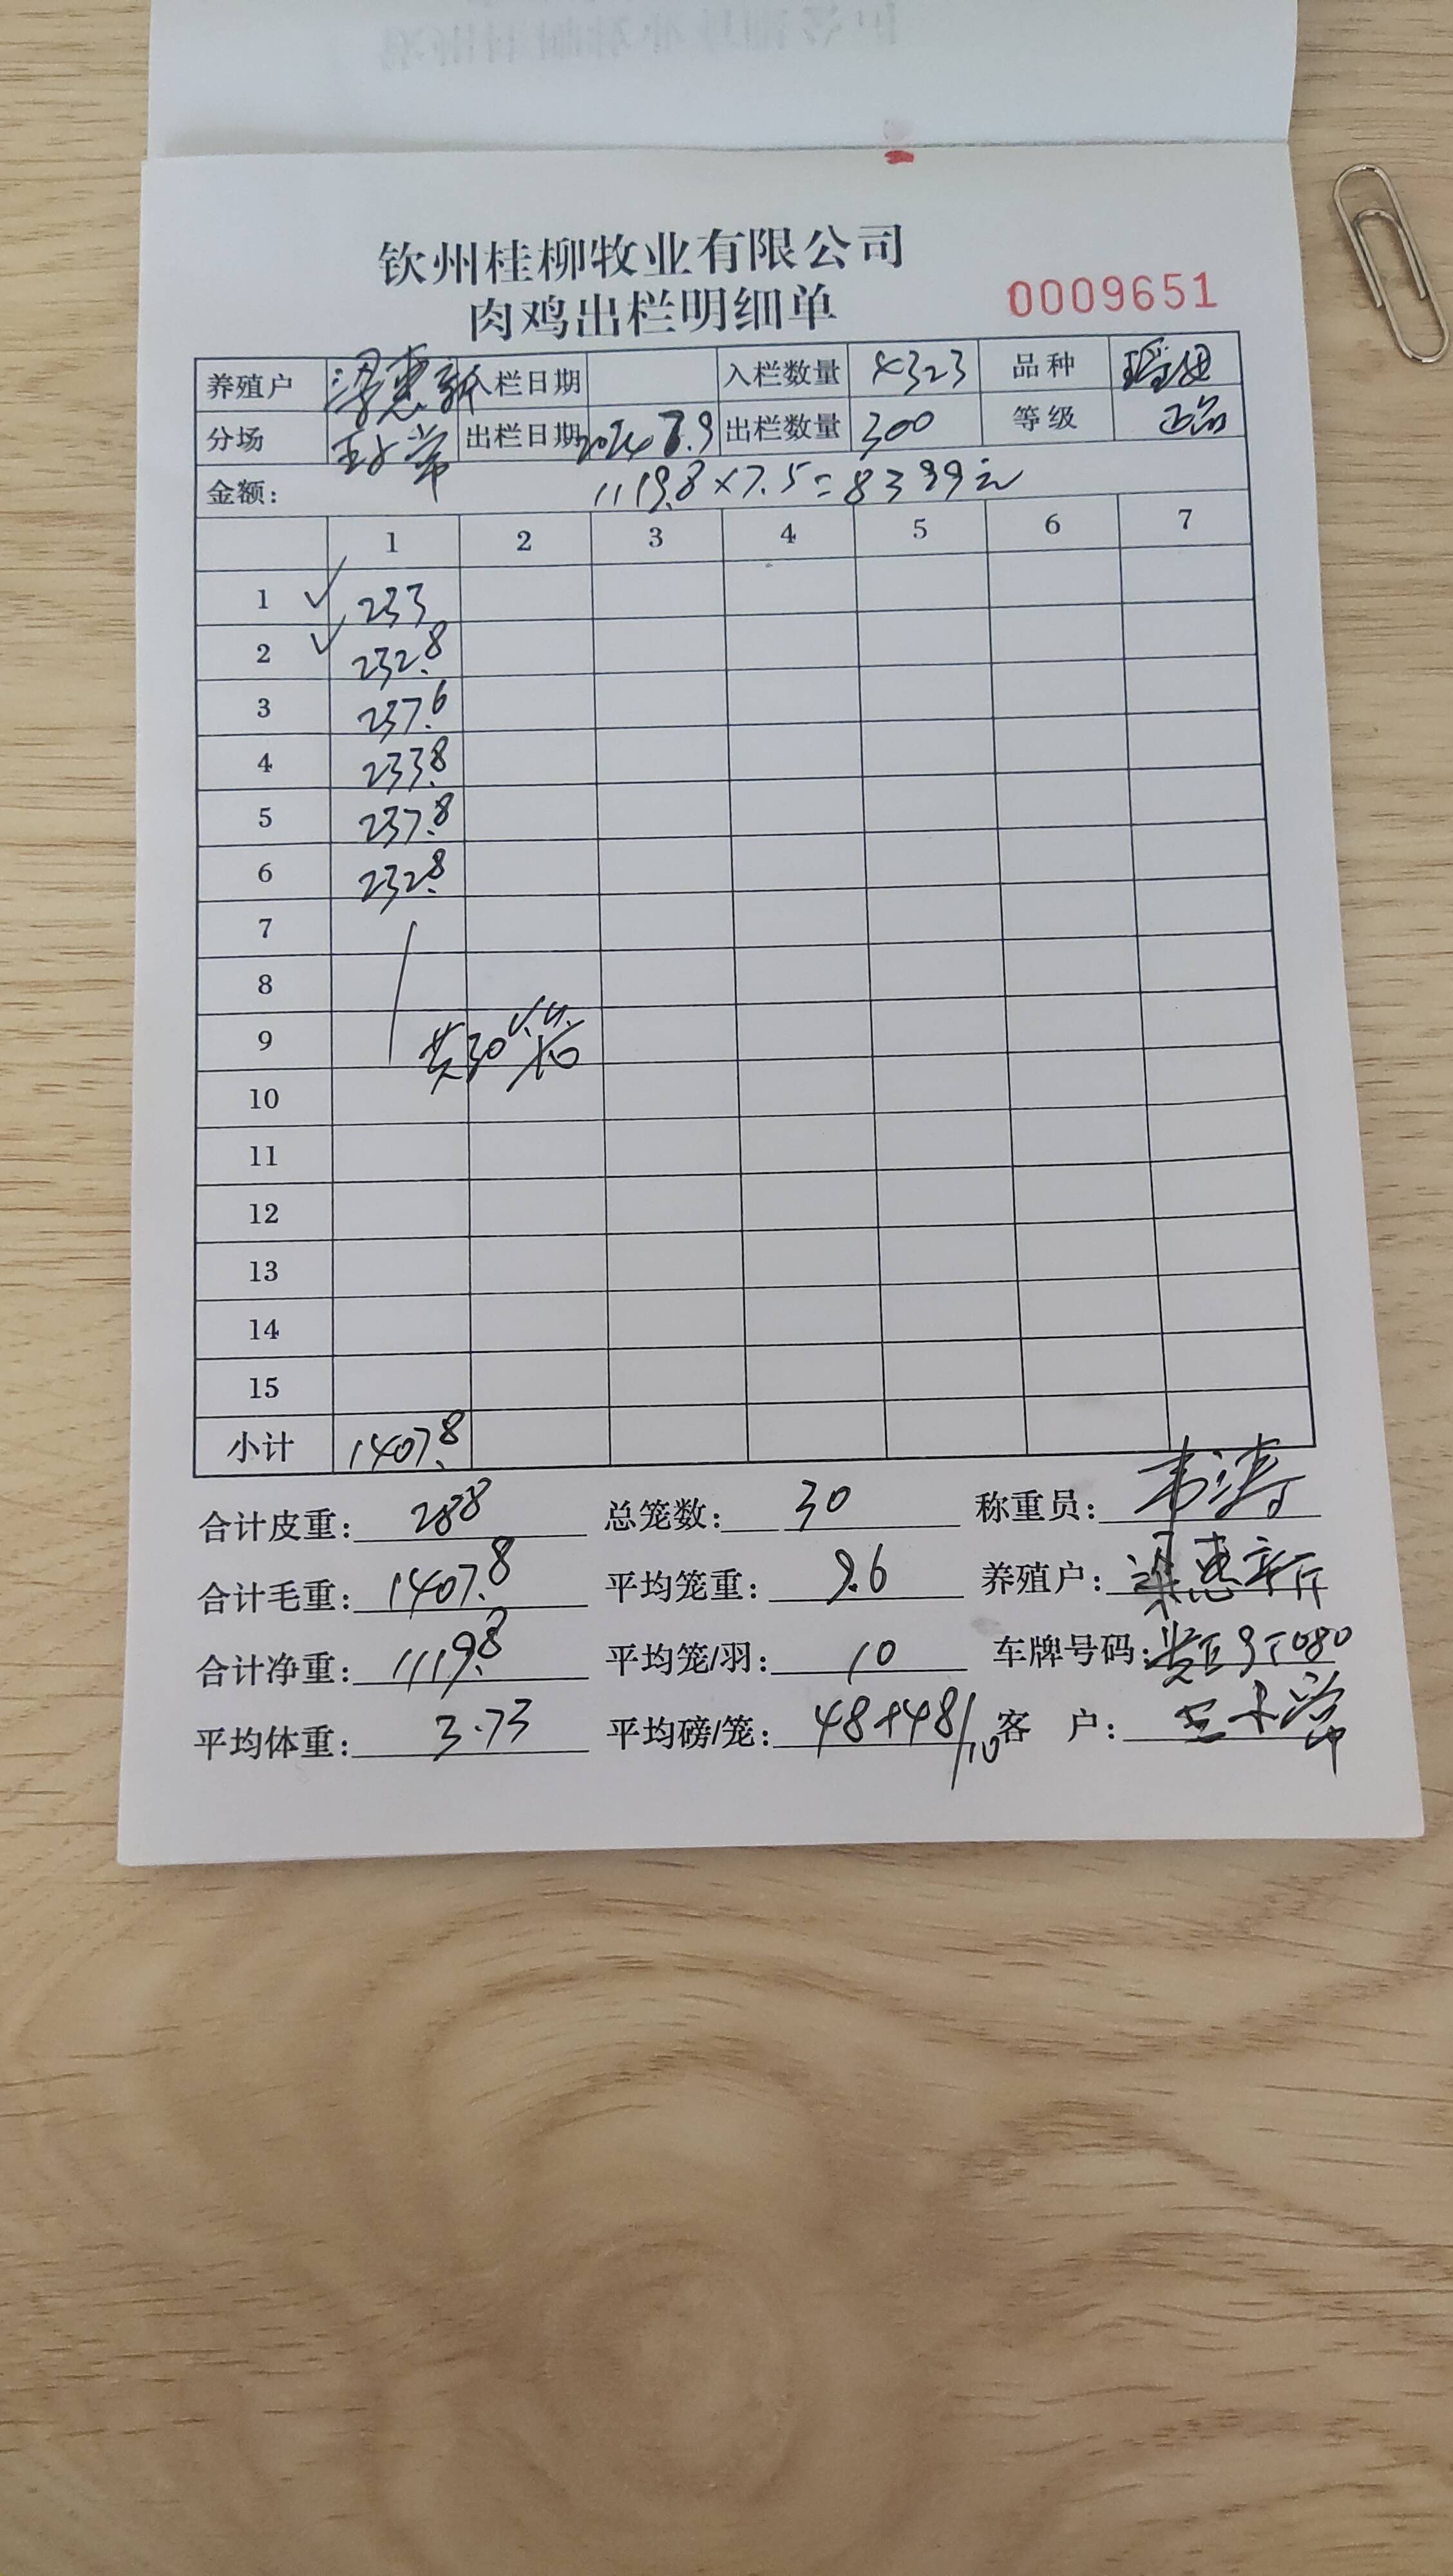 钦州桂柳牧业有限公司
肉鸡出栏明细单
0009651
养殖户 梁惠新 入栏日期 入栏数量 4323 品种
分场 出栏日期 2024 7.9 出栏数量 300 等级 正品
金额: 1119.8×7.5=8399元
1 2 3 4 5 6 7
1 233
2 232.8
3 237.6
4 233.8
5 237.8
6 232.8
7
8
9 共30
10
11
12
13
14
15
小计 1407.8
合计皮重: 288 总笼数: 30 称重员: 韦涛
合计毛重: 1407.8 平均笼重: 9.6 养殖户: 梁惠新
合计净重: 1119.8 平均笼/羽: 10 车牌号码:
平均体重: 3.73 平均磅/笼: 48+48/10 客户: